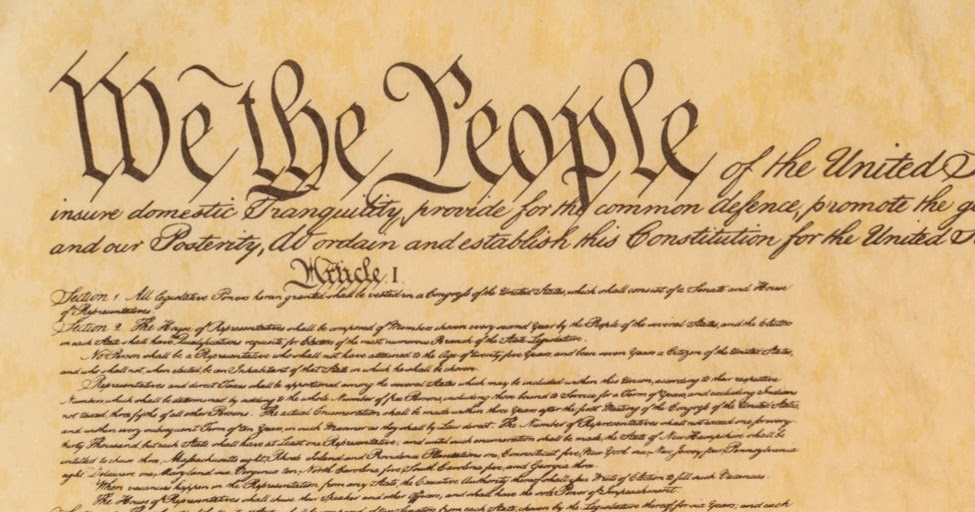 We the People of the United
insure domestic Tranquility, provide for the common defence, promote the
and our Posterity, do ordain and establish this Constitution for the United
Article. I.
Section. 1. All legislative Powers herein granted shall be vested in a Congress of the United States, which shall consist of a Senate and House
of Representatives.
Section. 2. The House of Representatives shall be composed of Members chosen every second Year by the People of the several States, and the Electors
in each State shall have Qualifications requisite for Electors of the most numerous Branch of the State Legislature.
No Person shall be a Representative who shall not have attained to the Age of twenty five Years, and been seven Years a Citizen of the United States,
and who shall not, when elected, be an Inhabitant of that State in which he shall be chosen.
Representatives and direct Taxes shall be apportioned among the several States which may be included within this Union, according to their respective
Numbers, which shall be determined by adding to the whole Number of free Persons, including those bound to Service for a Term of Years, and excluding Indians
not taxed, three fifths of all other Persons. The actual Enumeration shall be made within three Years after the first Meeting of the Congress of the United States,
and within every subsequent Term of ten Years, in such Manner as they shall by Law direct. The Number of Representatives shall not exceed one for every
thirty Thousand, but each State shall have at Least one Representative; and until such enumeration shall be made, the State of New Hampshire shall be
entitled to chuse three, Massachusetts eight, Rhode Island and Providence Plantations one, Connecticut five, New York six, New Jersey four, Pennsylvania
eight, Delaware one, Maryland six, Virginia ten, North Carolina five, South Carolina five, and Georgia three.
When vacancies happen in the Representation from any State, the Executive Authority thereof shall issue Writs of Election to fill such Vacancies.
The House of Representatives shall chuse their Speaker and other Officers; and shall have the sole Power of Impeachment.